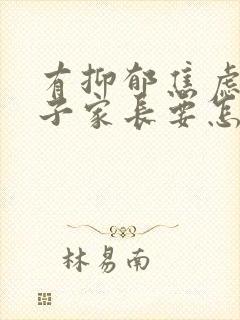 有抑郁焦虑
子家长要怎
林易南